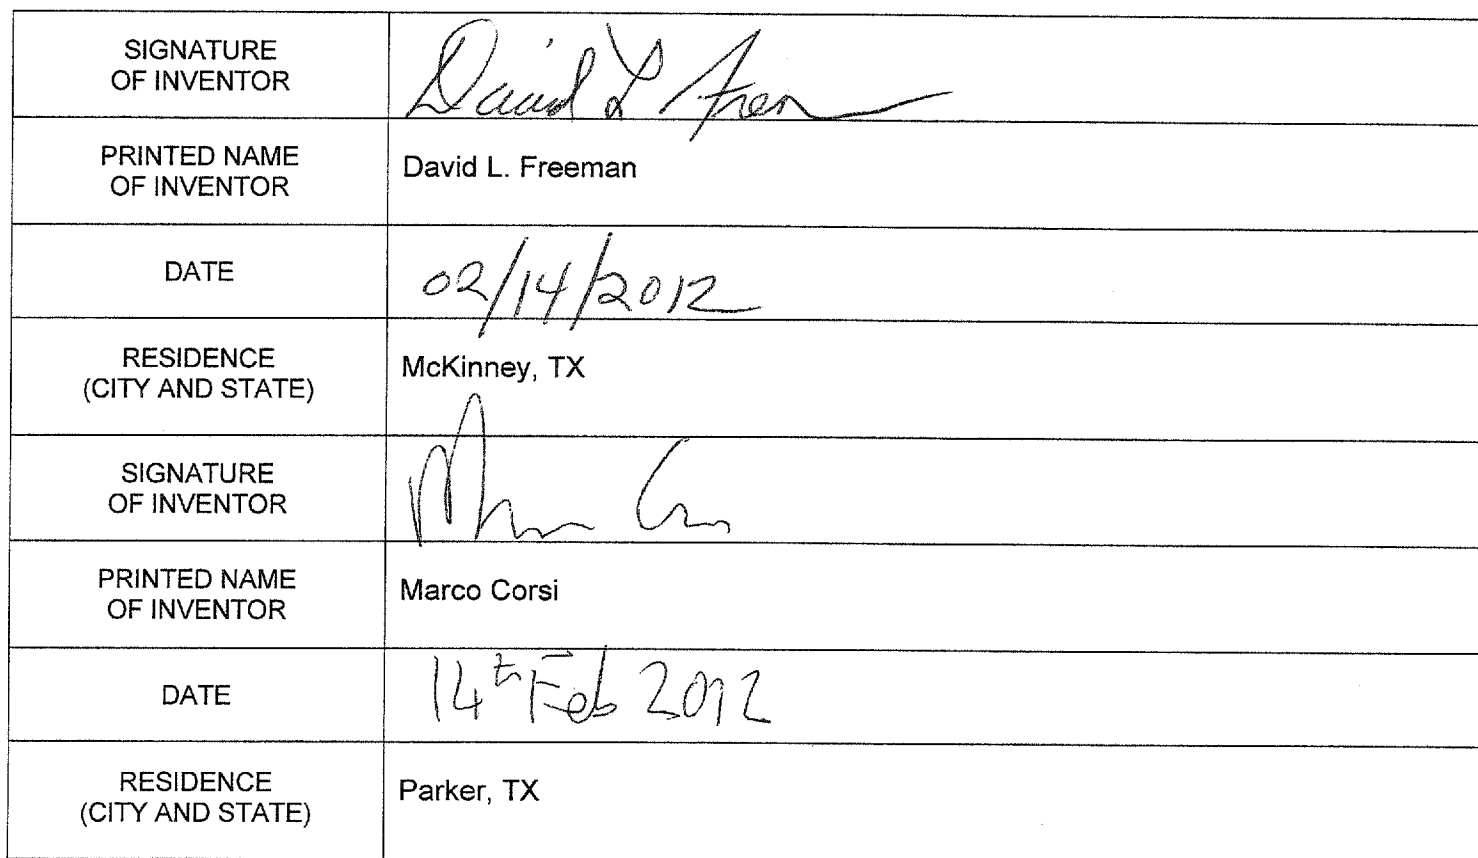 SIGNATURE
OF INVENTOR
David L Free
PRINTED NAME
OF INVENTOR
David L. Freeman
DATE
02/14/2012
RESIDENCE
(CITY AND STATE)
McKinney, TX
SIGNATURE
OF INVENTOR
PRINTED NAME
OF INVENTOR
Marco Corsi
DATE
14th Feb 2012
RESIDENCE
(CITY AND STATE)
Parker, TX